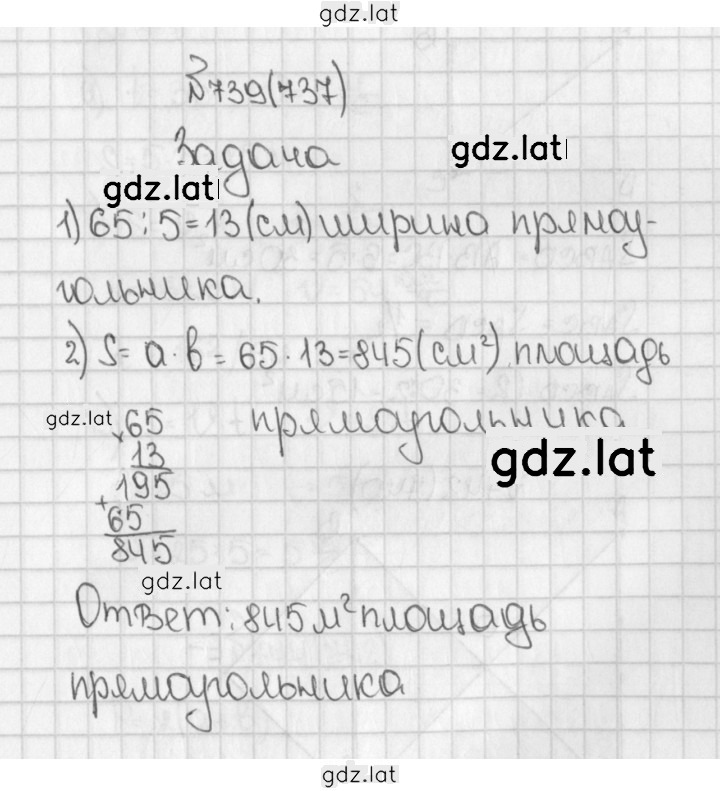 gdz.lat
№739(737)
Задача
gdz.lat
gdz.lat
1) 65:5=13(см) ширина прямоу-
гольника.
2) S= a·b = 65·13=845(см²) площадь
прямоугольника
gdz.lat
× 65
13
195
+ 65
845
gdz.lat
gdz.lat
Ответ: 845 м² площадь
прямоугольника
gdz.lat